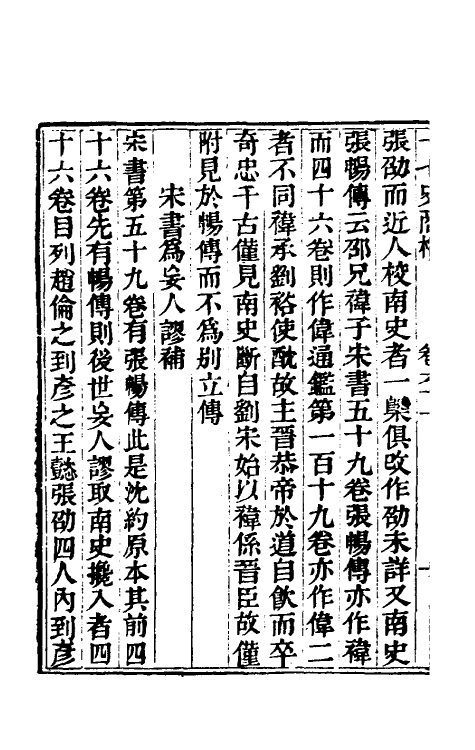 張劭而近人校南史者一槩俱改作劭未詳又南史
張暢傳云邵兄禕子宋書五十九卷張暢傳亦作禕
而四十六卷則作偉通鑑第一百十九卷亦作偉二
者不同禕承劉裕使酖故主晉恭帝於道自飲而卒
奇忠千古僅見南史斷自劉宋始以禕係晉臣故僅
附見於暢傳而不為別立傳
宋書為妄人謬補
宋書第五十九卷有張暢傳此是沈約原本其前四
十六卷先有暢傳則後世妄人謬取南史攙入者四
十六卷目列趙倫之到彥之王懿張劭四人內到彥